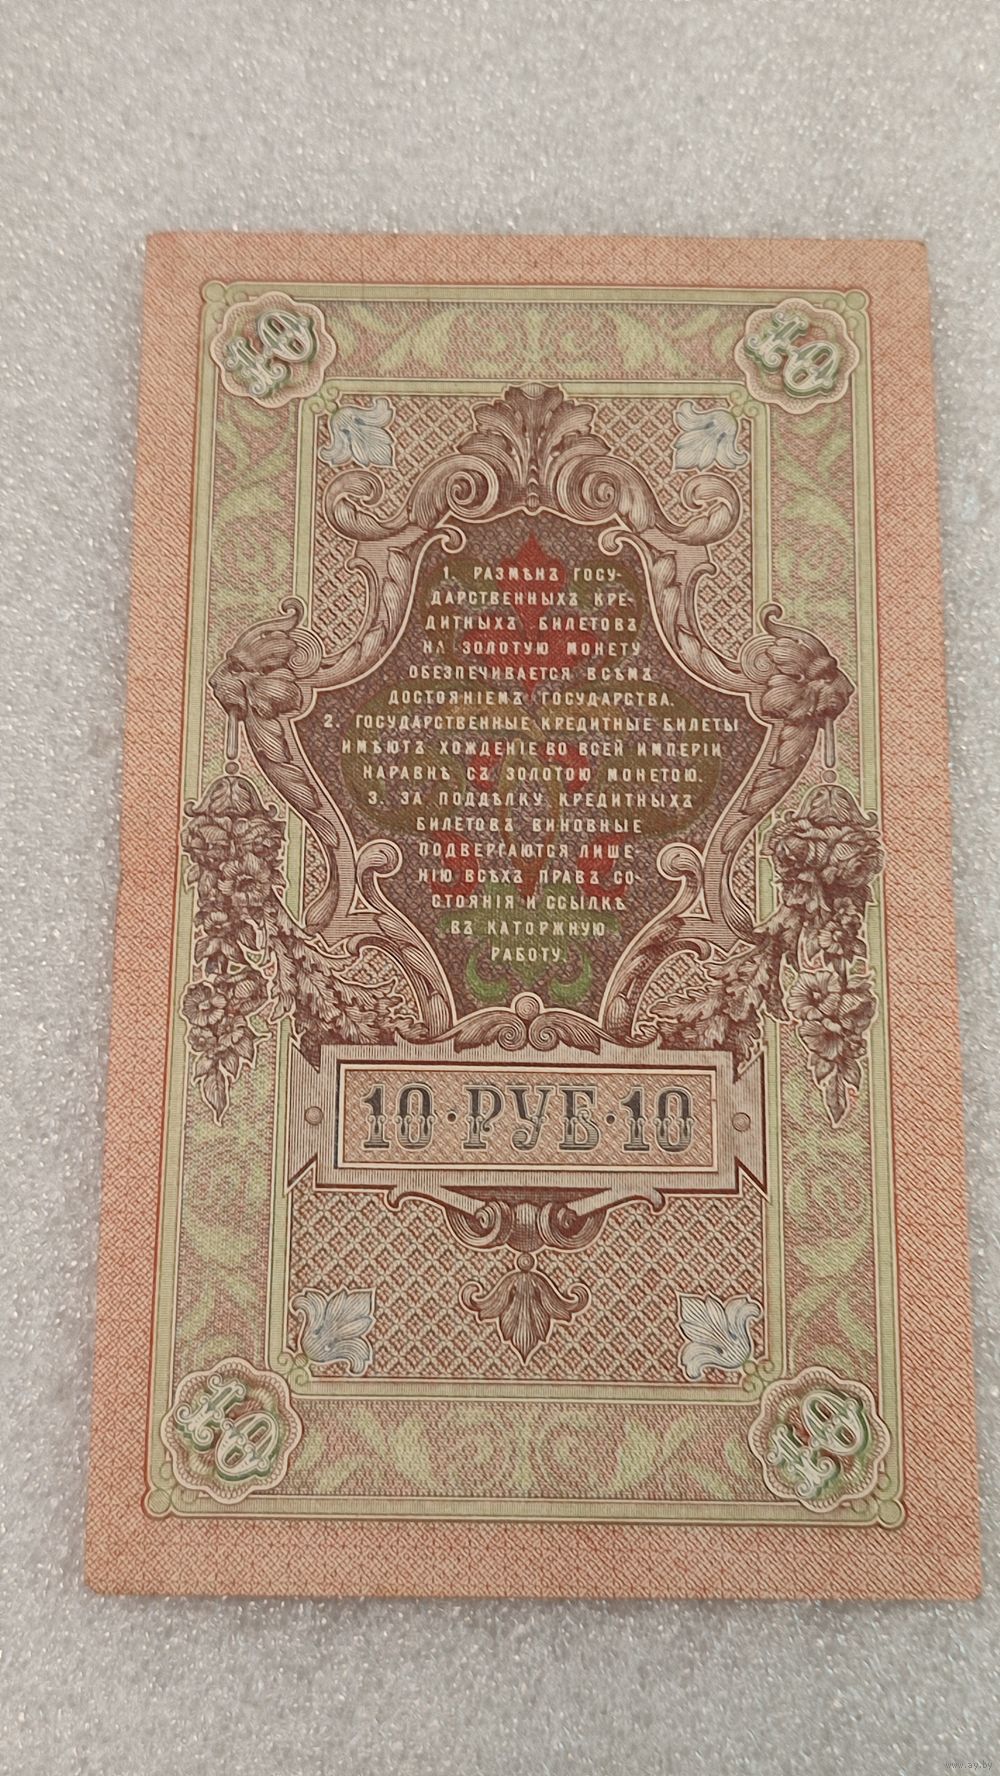 10 10
1. РАЗМѢНЪ ГОСУ-
ДАРСТВЕННЫХЪ КРЕ-
ДИТНЫХЪ БИЛЕТОВЪ
НА ЗОЛОТУЮ МОНЕТУ
ОБЕЗПЕЧИВАЕТСЯ ВСѢМЪ
ДОСТОЯНІЕМЪ ГОСУДАРСТВА.
2. ГОСУДАРСТВЕННЫЕ КРЕДИТНЫЕ БИЛЕТЫ
ИМѢЮТЪ ХОЖДЕНІЕ ВО ВСЕЙ ИМПЕРІИ
НАРАВНѢ СЪ ЗОЛОТОЮ МОНЕТОЮ.
3. ЗА ПОДДѢЛКУ КРЕДИТНЫХЪ
БИЛЕТОВЪ ВИНОВНЫЕ
ПОДВЕРГАЮТСЯ ЛИШЕ-
НІЮ ВСѢХЪ ПРАВЪ СО-
СТОЯНІЯ И ССЫЛКѢ
ВЪ КАТОРЖНУЮ
РАБОТУ.
10·РУБ·10
10 10
www.ay.by